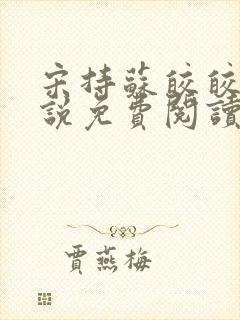 宋持蘇皎皎
說免費閱讀
賈燕梅